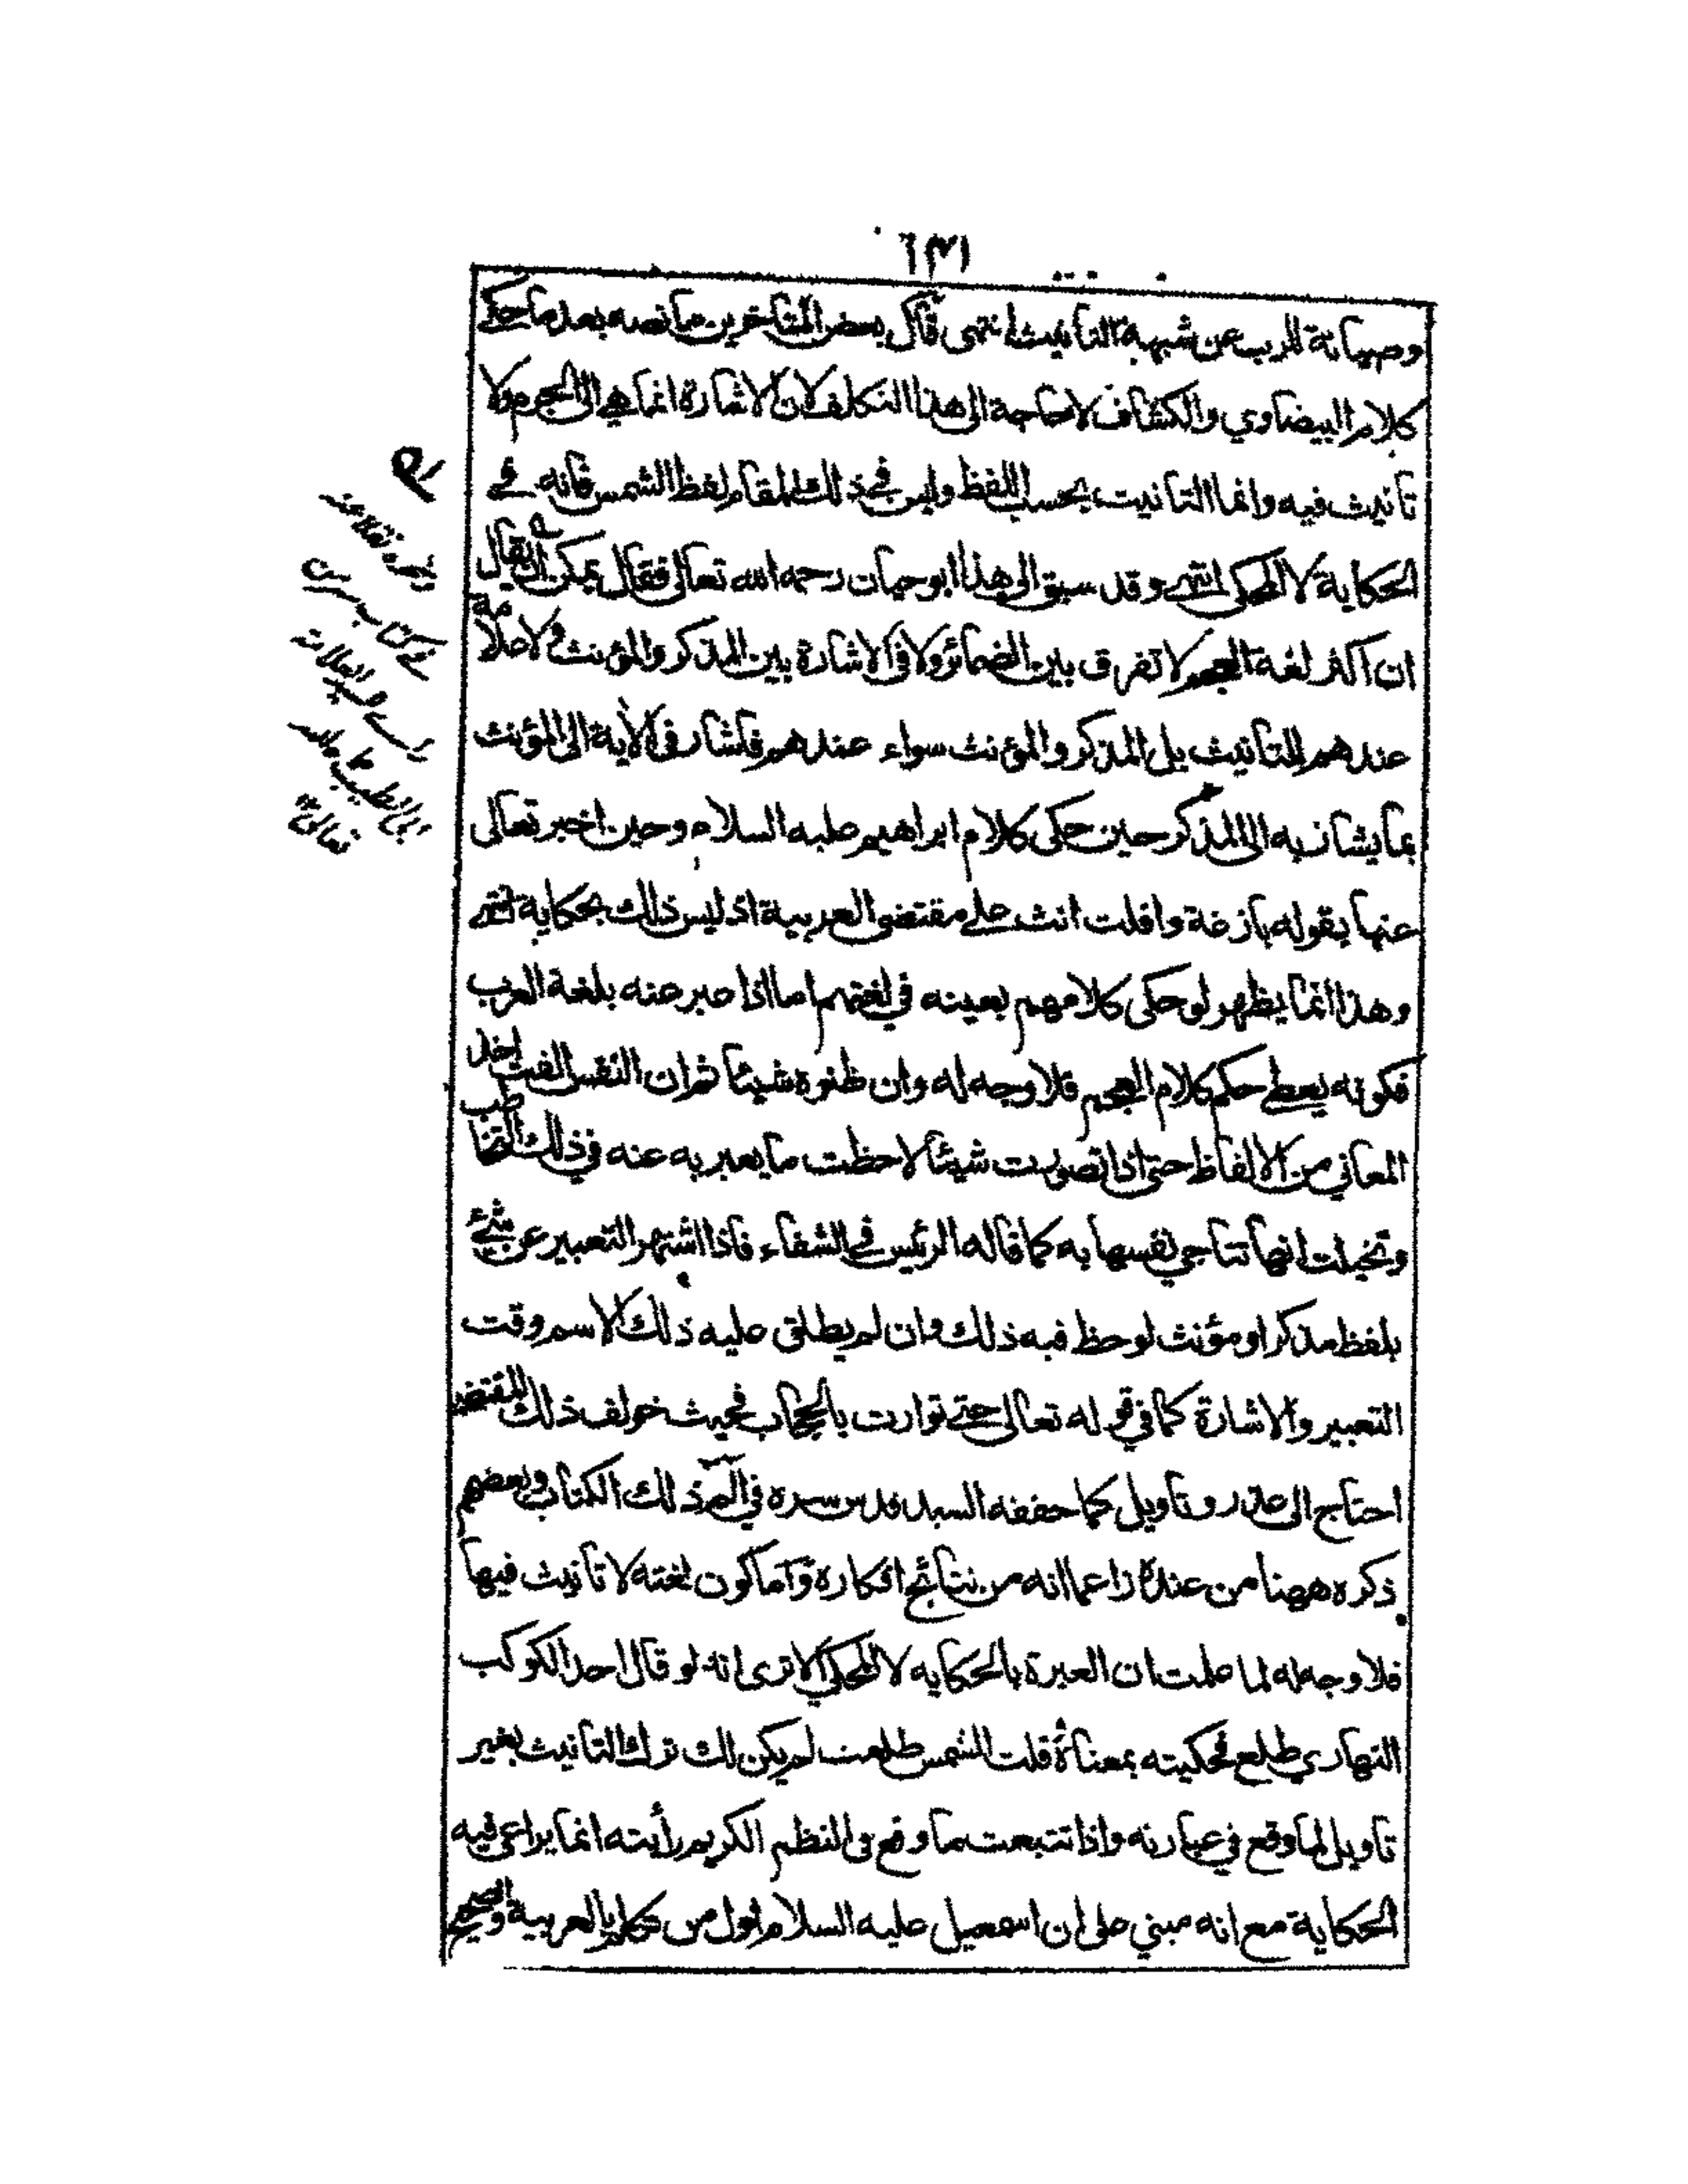 ١٣١
وصيانة للرب عن شبهة التانيث انتهى قال بعض المتاخرين ما نصه بعد ما حكى
كلام البيضاوي والكشاف لا حاجة الى هذا التكلف لان الاشارة انما هي الى الجرم ولا
تانيث فيه وانما التانيث بحسب اللفظ وليس في ذلك المقام لفظ الشمس فانه في
الحكاية لا المحكى انتهى وقد سبق الى هذا ابو حيان رحمه الله تعالى فقال يمكن ان يقال
ان اكثر لغة العجم لا تفرق بين الضمائر ولا في الاشارة بين المذكر والمؤنث ولا علامة
عندهم للتانيث بل المذكر والمؤنث سواء عندهم فاشار في الآية الى المؤنث
بما يشار به الى المذكر حين حكى كلام ابراهيم عليه السلام وحين اخبر تعالى
عنها بقوله بازغة وافلت انث على مقتضى العربية اذ ليس ذلك بحكاية انتهى
وهذا انما يظهر لو حكى كلامهم بعينه في لغتهم اما اذا عبر عنه بلغة العرب
فكونه يعطى حكم كلام العجم فلا وجه له وان ظنوه شيئا ثم ان النفس الفت اخذ
المعاني من الالفاظ حتى اذا تصورت شيئا لاحظت ما يعبر به عنه في ذلك التخاطب
وتخيلت انها تناجي نفسها به كما قاله الرئيس في الشفاء فاذا اشتهر التعبير عن شئ
بلفظ مذكر او مؤنث لوحظ فيه ذلك وان لم يطلق عليه ذلك الاسم وقت
التعبير والاشارة كما في قوله تعالى حتى توارت بالحجاب فحيث خولف ذلك المقتضى
احتاج الى عذر وتاويل كما حققه السيد قدس سره في الم ذلك الكتاب وبعضهم
ذكره ههنا من عنده زاعما انه من نتائج افكاره واما كون لغته لا تانيث فيها
فلا وجه له لما علمت ان العبرة بالحكايه لا المحكي الا ترى انه لو قال احد الكوكب
النهاري طلع فحكيته بمعناه قلت الشمس طلعت لم يكن لك ترك التانيث بغير
تاويل لما وقع في عبارته واذا تتبعت ما وقع في النظم الكريم رأيته انما يراعى فيه
الحكاية مع انه مبني على ان اسمعيل عليه السلام اول من تكلم بالعربية والصحيح
نقلا عنه
تعالى